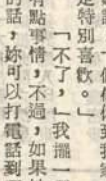 是特別喜歡。」
「不了，」我擺一
有點事情，不過，如果
的話，妳可以打電話到